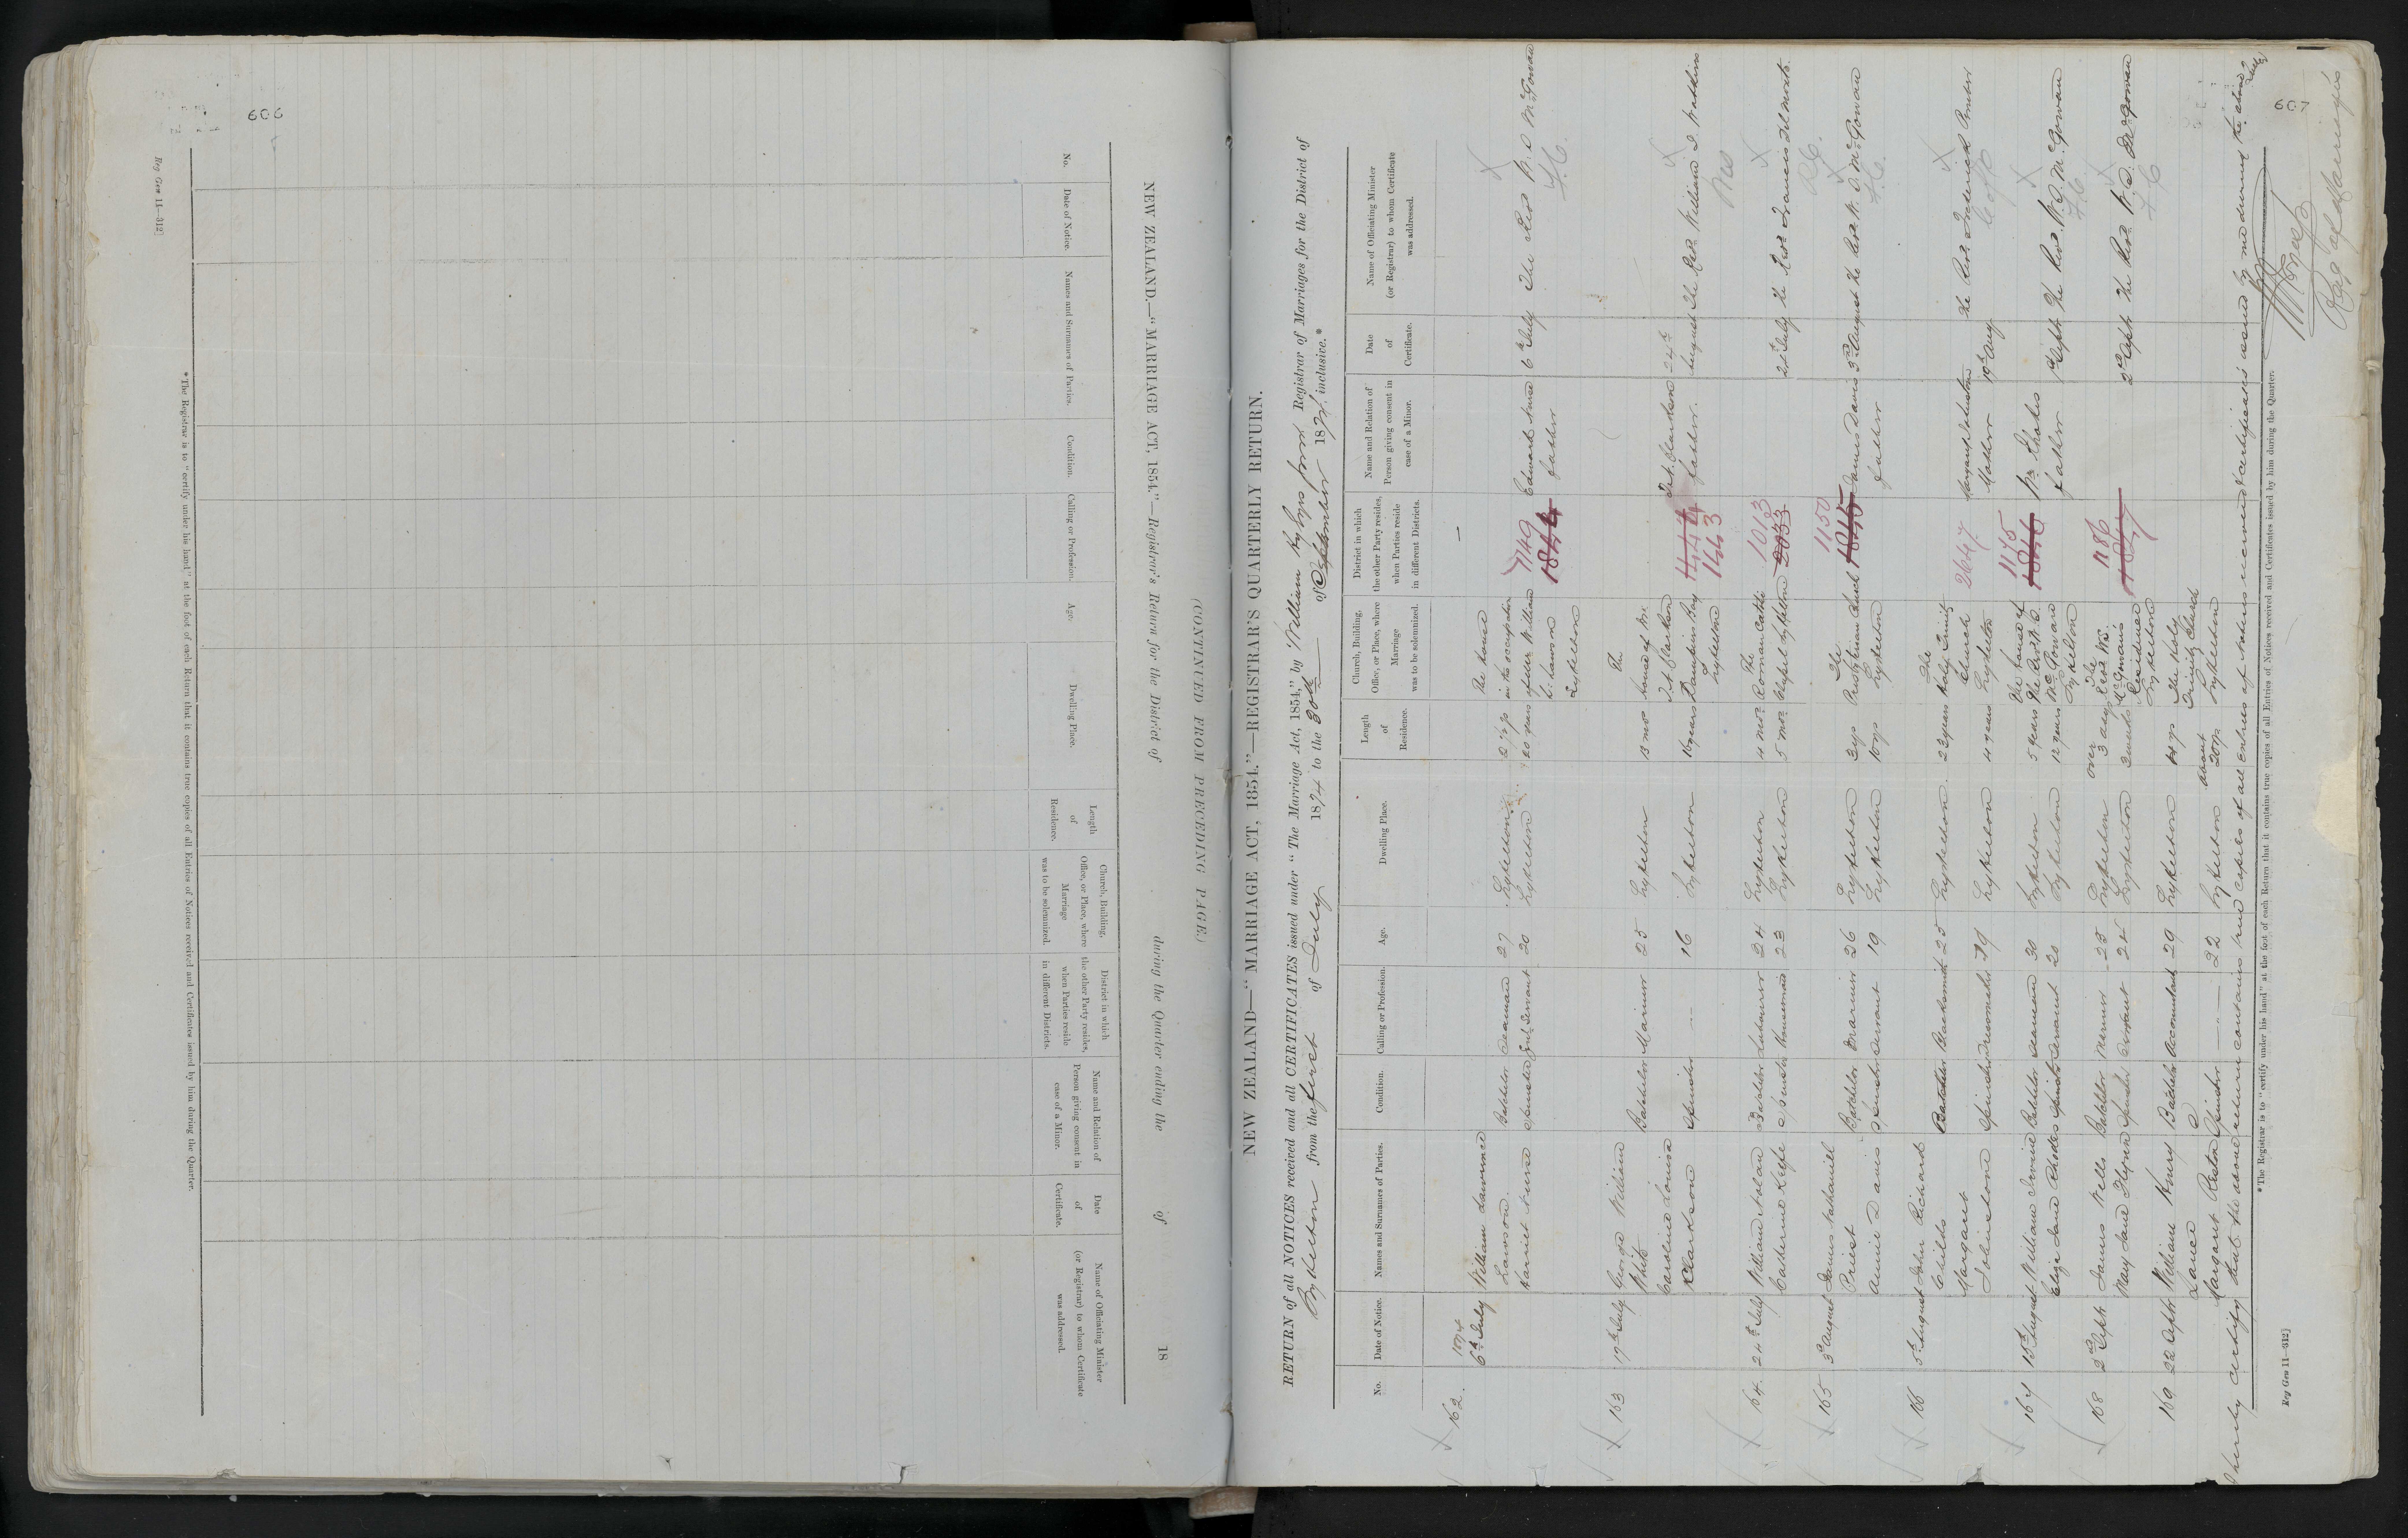 606
Reg Gen 11—312]
(CONTINUED FROM PRECEDING PAGE.)
NEW ZEALAND.—"MARRIAGE ACT, 1854."—Registrar's Return for the District of during the Quarter ending the of 18
No.
Date of Notice.
Names and Surnames of Parties.
Condition.
Calling or Profession.
Age.
Dwelling Place.
Length of Residence.
Church, Building, Office, or Place, where Marriage was to be solemnized.
District in which the other Party resides, when Parties reside in different Districts.
Name and Relation of Person giving consent in case of a Minor.
Date of Certificate.
Name of Officiating Minister (or Registrar) to whom Certificate was addressed.
*The Registrar is to "certify under his hand" at the foot of each Return that it contains true copies of all Entries of Notices received and Certificates issued by him during the Quarter.
607
NEW ZEALAND—"MARRIAGE ACT, 1854."—REGISTRAR'S QUARTERLY RETURN.
RETURN of all NOTICES received and all CERTIFICATES issued under "The Marriage Act, 1854," by William Registrar of Marriages for the District of
Lyttelton from the first of July 1874 to the 30th of September 1874 inclusive.*
No.
Date of Notice.
Names and Surnames of Parties.
Condition.
Calling or Profession.
Age.
Dwelling Place.
Length of Residence.
Church, Building, Office, or Place, where Marriage was to be solemnized.
District in which the other Party resides, when Parties reside in different Districts.
Name and Relation of Person giving consent in case of a Minor.
Date of Certificate.
Name of Officiating Minister (or Registrar) to whom Certificate was addressed.
1874
162. 6th July William Lawrence Lawson Batchelor Seaman 27 Lyttelton 2 1/2 yrs The house in the occupation of William Lawson Lyttelton 6th July The Rev W. D. McGowan
Harriet Spinster Servant 20 Lyttelton 20 years 1149 1844 Edward father F.C.
163 17th July George William White Batchelor Mariner 25 Lyttelton 13 mos The house of Mr. T. A. Clarkson Dampier Bay Lyttelton 24th August The Rev. William
Caroline Louisa Clarkson Spinster -- 16 Lyttelton 16 years 1443 T. A. Clarkson father.
164. 24th July William Nolan Batchelor Labourer 24 Lyttelton 4 mos The Roman Catholic Chapel Lyttelton 1013 2033 24 July The Rev. Francis Del Monte
Catherine Keefe Spinster Housemaid 23 Lyttelton 5 mos R.C.
165 3d August James Nathaniel Priest Batchelor Mariner 26 Lyttelton 3 yrs The Presbyterian Church Lyttelton 1150 1845 James Davis father 3d August The Rev. W. D. McGowan
Annie Davis Spinster Servant 19 Lyttelton 10 yrs F.C.
166 5th August John Richard Childs Batchelor Blacksmith 25 Lyttelton 23 years The Holy Trinity Church Lyttelton 2647 Margaret Johnstone Mother 19th Aug The Rev. Frederick
Margaret Johnstone Spinster Dressmaker 19 Lyttelton 4 years C of E
167 15th August William Irvine Batchelor Seaman 30 Lyttelton 5 years The house of the Rev. W. D. McGowan Lyttelton 1175 1846 Wm Rhodes father 1st Sept The Rev. W. D. McGowan
Eliza Jane Rhodes Spinster Servant 20 Lyttelton 12 years F.C.
168 2d Sept James Wells Batchelor Mariner 25 Lyttelton over 3 days The Revd Wm. McGowan's Residence Lyttelton 1186 1847 2d Sept The Rev. W. D. McGowan
Mary Jane Flynn Spinster Servant 24 Lyttelton 2 weeks F.C.
169 22 Sept William Henry Batchelor Accountant 29 Lyttelton The Holy Trinity Church Lyttelton
Margaret Spinster --- 22 Lyttelton about 20 yrs
I hereby certify that the above return contains true copies of all entries of Notices received & certificates issued by me during the above
Reg of Marriages
*The Registrar is to "certify under his hand" at the foot of each Return that it contains true copies of all Entries of Notices received and Certificates issued by him during the Quarter.
Reg Gen 11—312]